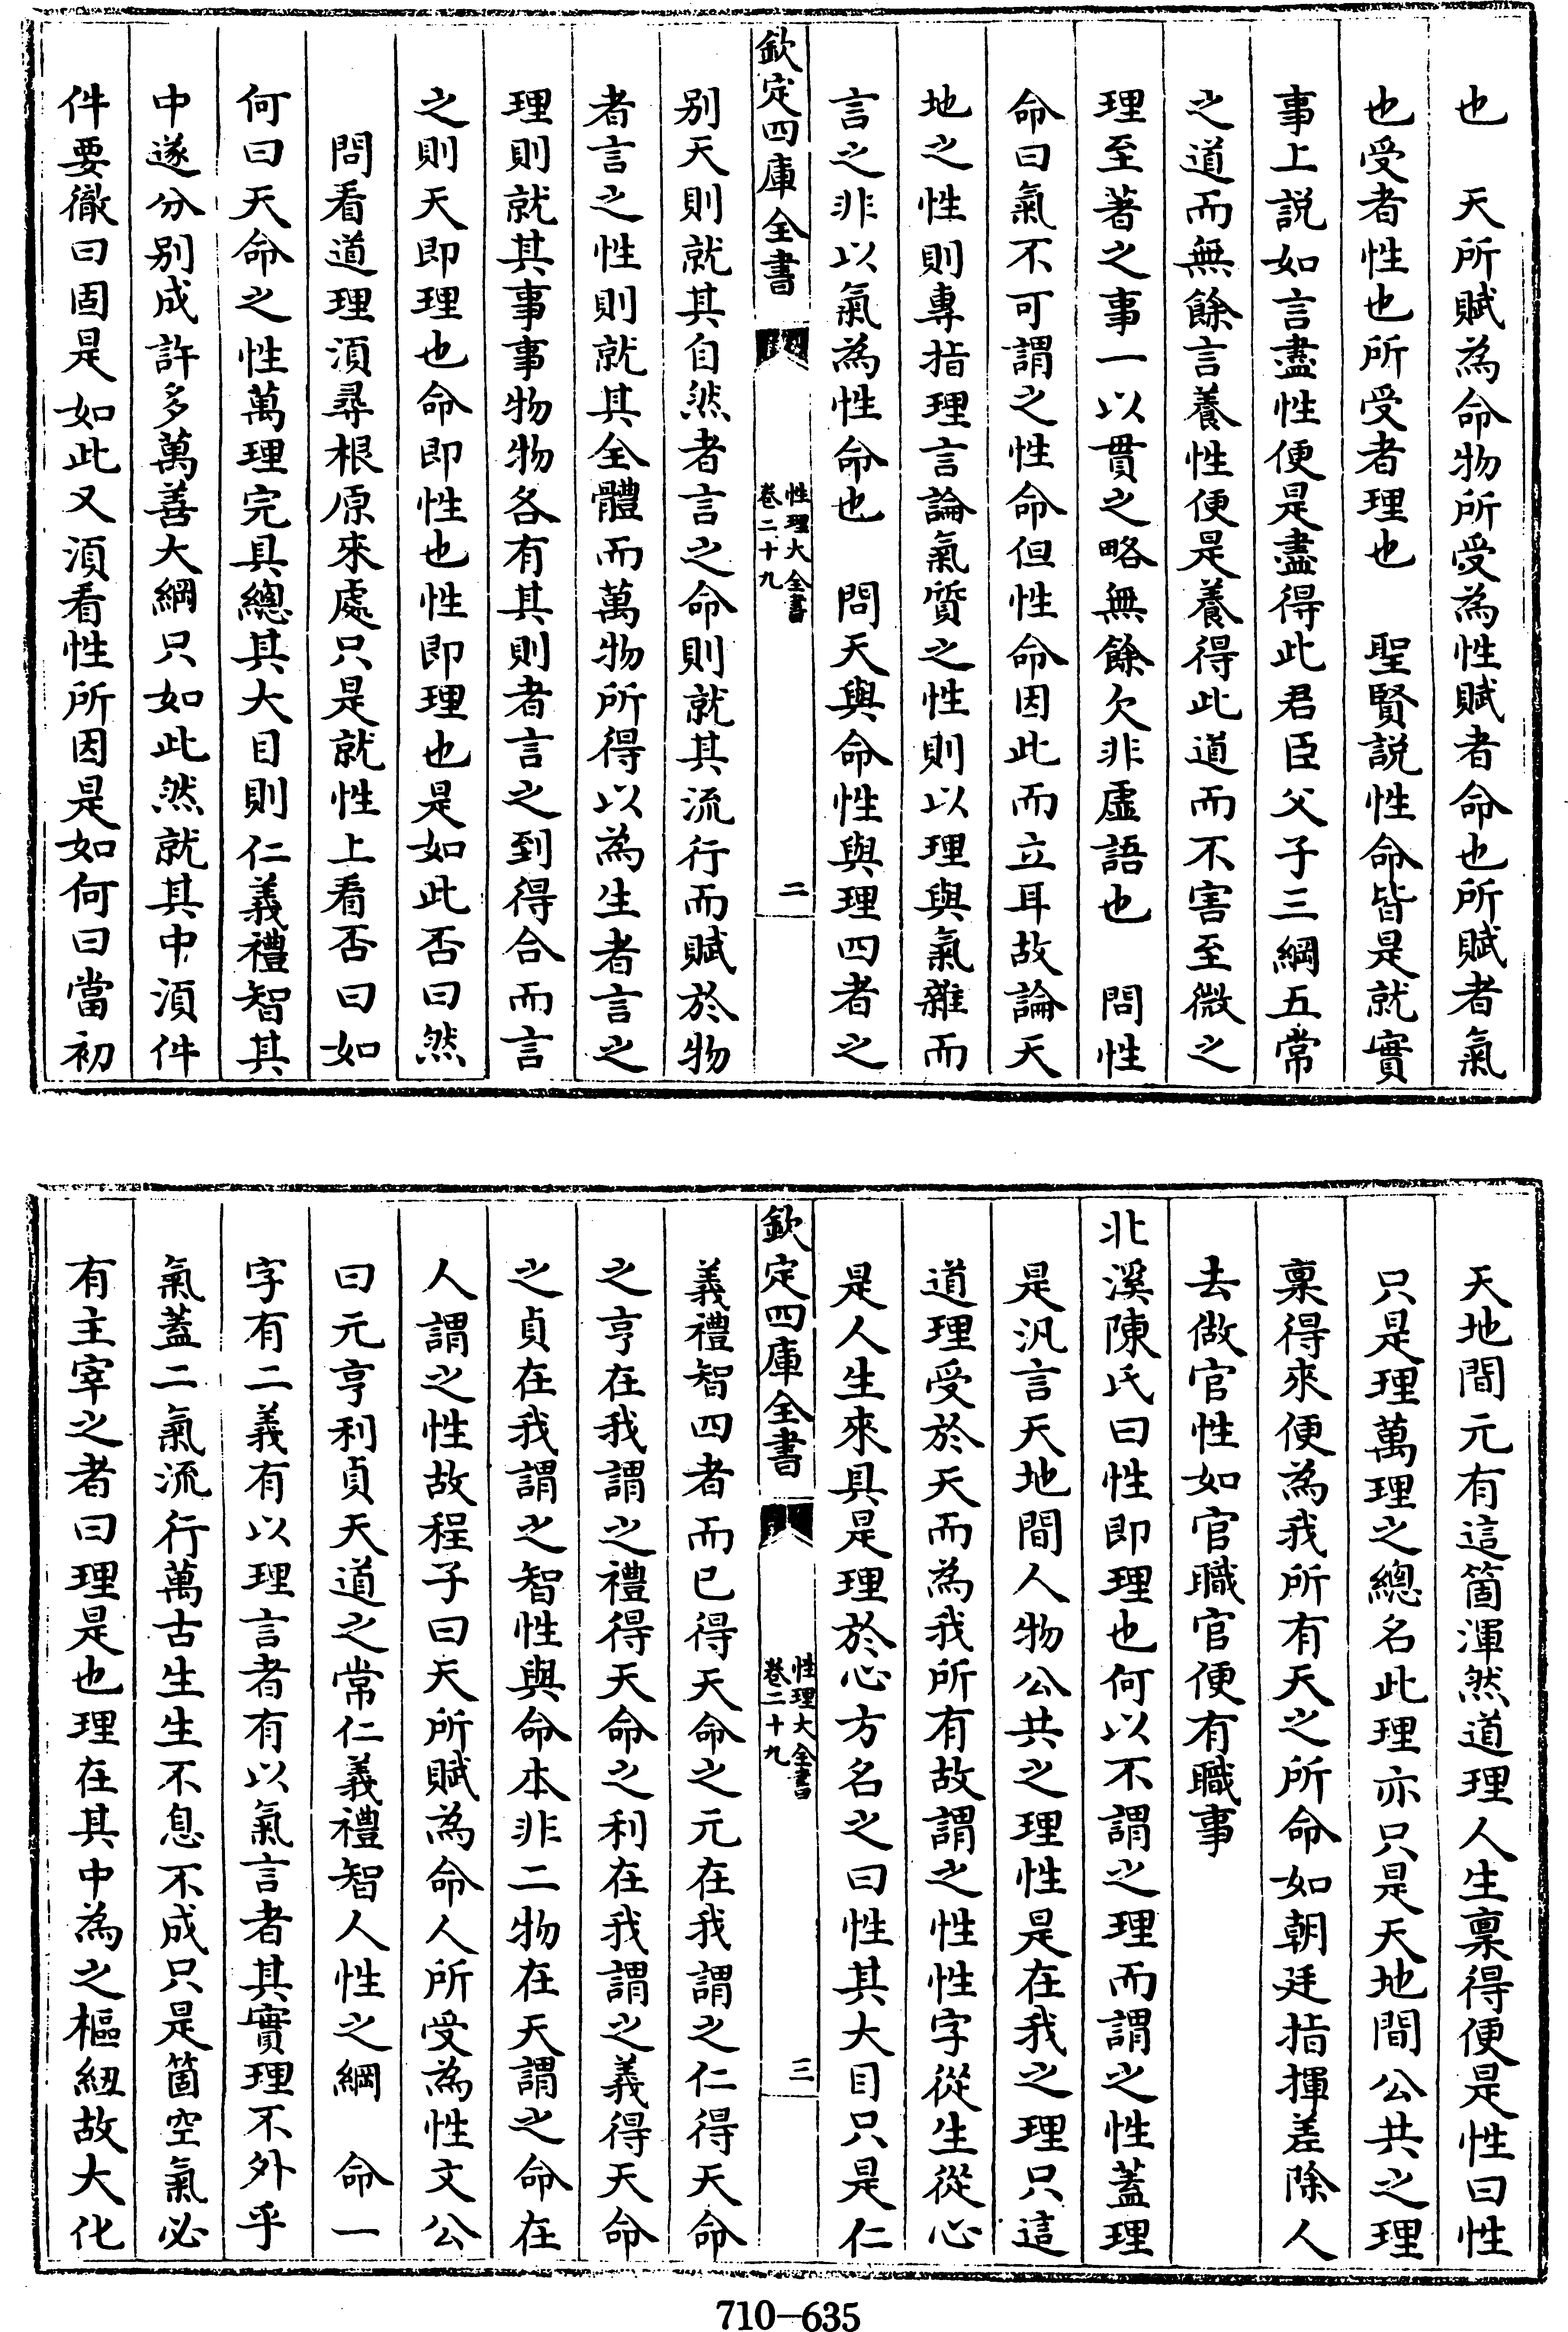 也　天所賦為命物所受為性賦者命也所賦者氣
也受者性也所受者理也　聖賢説性命皆是就實
事上説如言盡性便是盡得此君臣父子三綱五常
之道而無餘言養性便是養得此道而不害至微之
理至著之事一以貫之略無餘欠非虛語也　問性
命曰氣不可謂之性命但性命因此而立耳故論天
地之性則專指理言論氣質之性則以理與氣雜而
言之非以氣為性命也　問天與命性與理四者之
欽定四庫全書
性理大全書
卷二十九
二
别天則就其自然者言之命則就其流行而賦於物
者言之性則就其全體而萬物所得以為生者言之
理則就其事事物物各有其則者言之到得合而言
之則天即理也命即性也性即理也是如此否曰然
問看道理須尋根原來處只是就性上看否曰如
何曰天命之性萬理完具總其大目則仁義禮智其
中遂分别成許多萬善大綱只如此然就其中須件
件要徹曰固是如此又須看性所因是如何曰當初
天地間元有這箇渾然道理人生稟得便是性曰性
只是理萬理之總名此理亦只是天地間公共之理
稟得來便為我所有天之所命如朝廷指揮差除人
去做官性如官職官便有職事
北溪陳氏曰性即理也何以不謂之理而謂之性蓋理
是汎言天地間人物公共之理性是在我之理只這
道理受於天而為我所有故謂之性性字從生從心
是人生來具是理於心方名之曰性其大目只是仁
欽定四庫全書
性理大全書
卷二十九
三
義禮智四者而已得天命之元在我謂之仁得天命
之亨在我謂之禮得天命之利在我謂之義得天命
之貞在我謂之智性與命本非二物在天謂之命在
人謂之性故程子曰天所賦為命人所受為性文公
曰元亨利貞天道之常仁義禮智人性之綱　命一
字有二義有以理言者有以氣言者其實理不外乎
氣蓋二氣流行萬古生生不息不成只是箇空氣必
有主宰之者曰理是也理在其中為之樞紐故大化
710-635